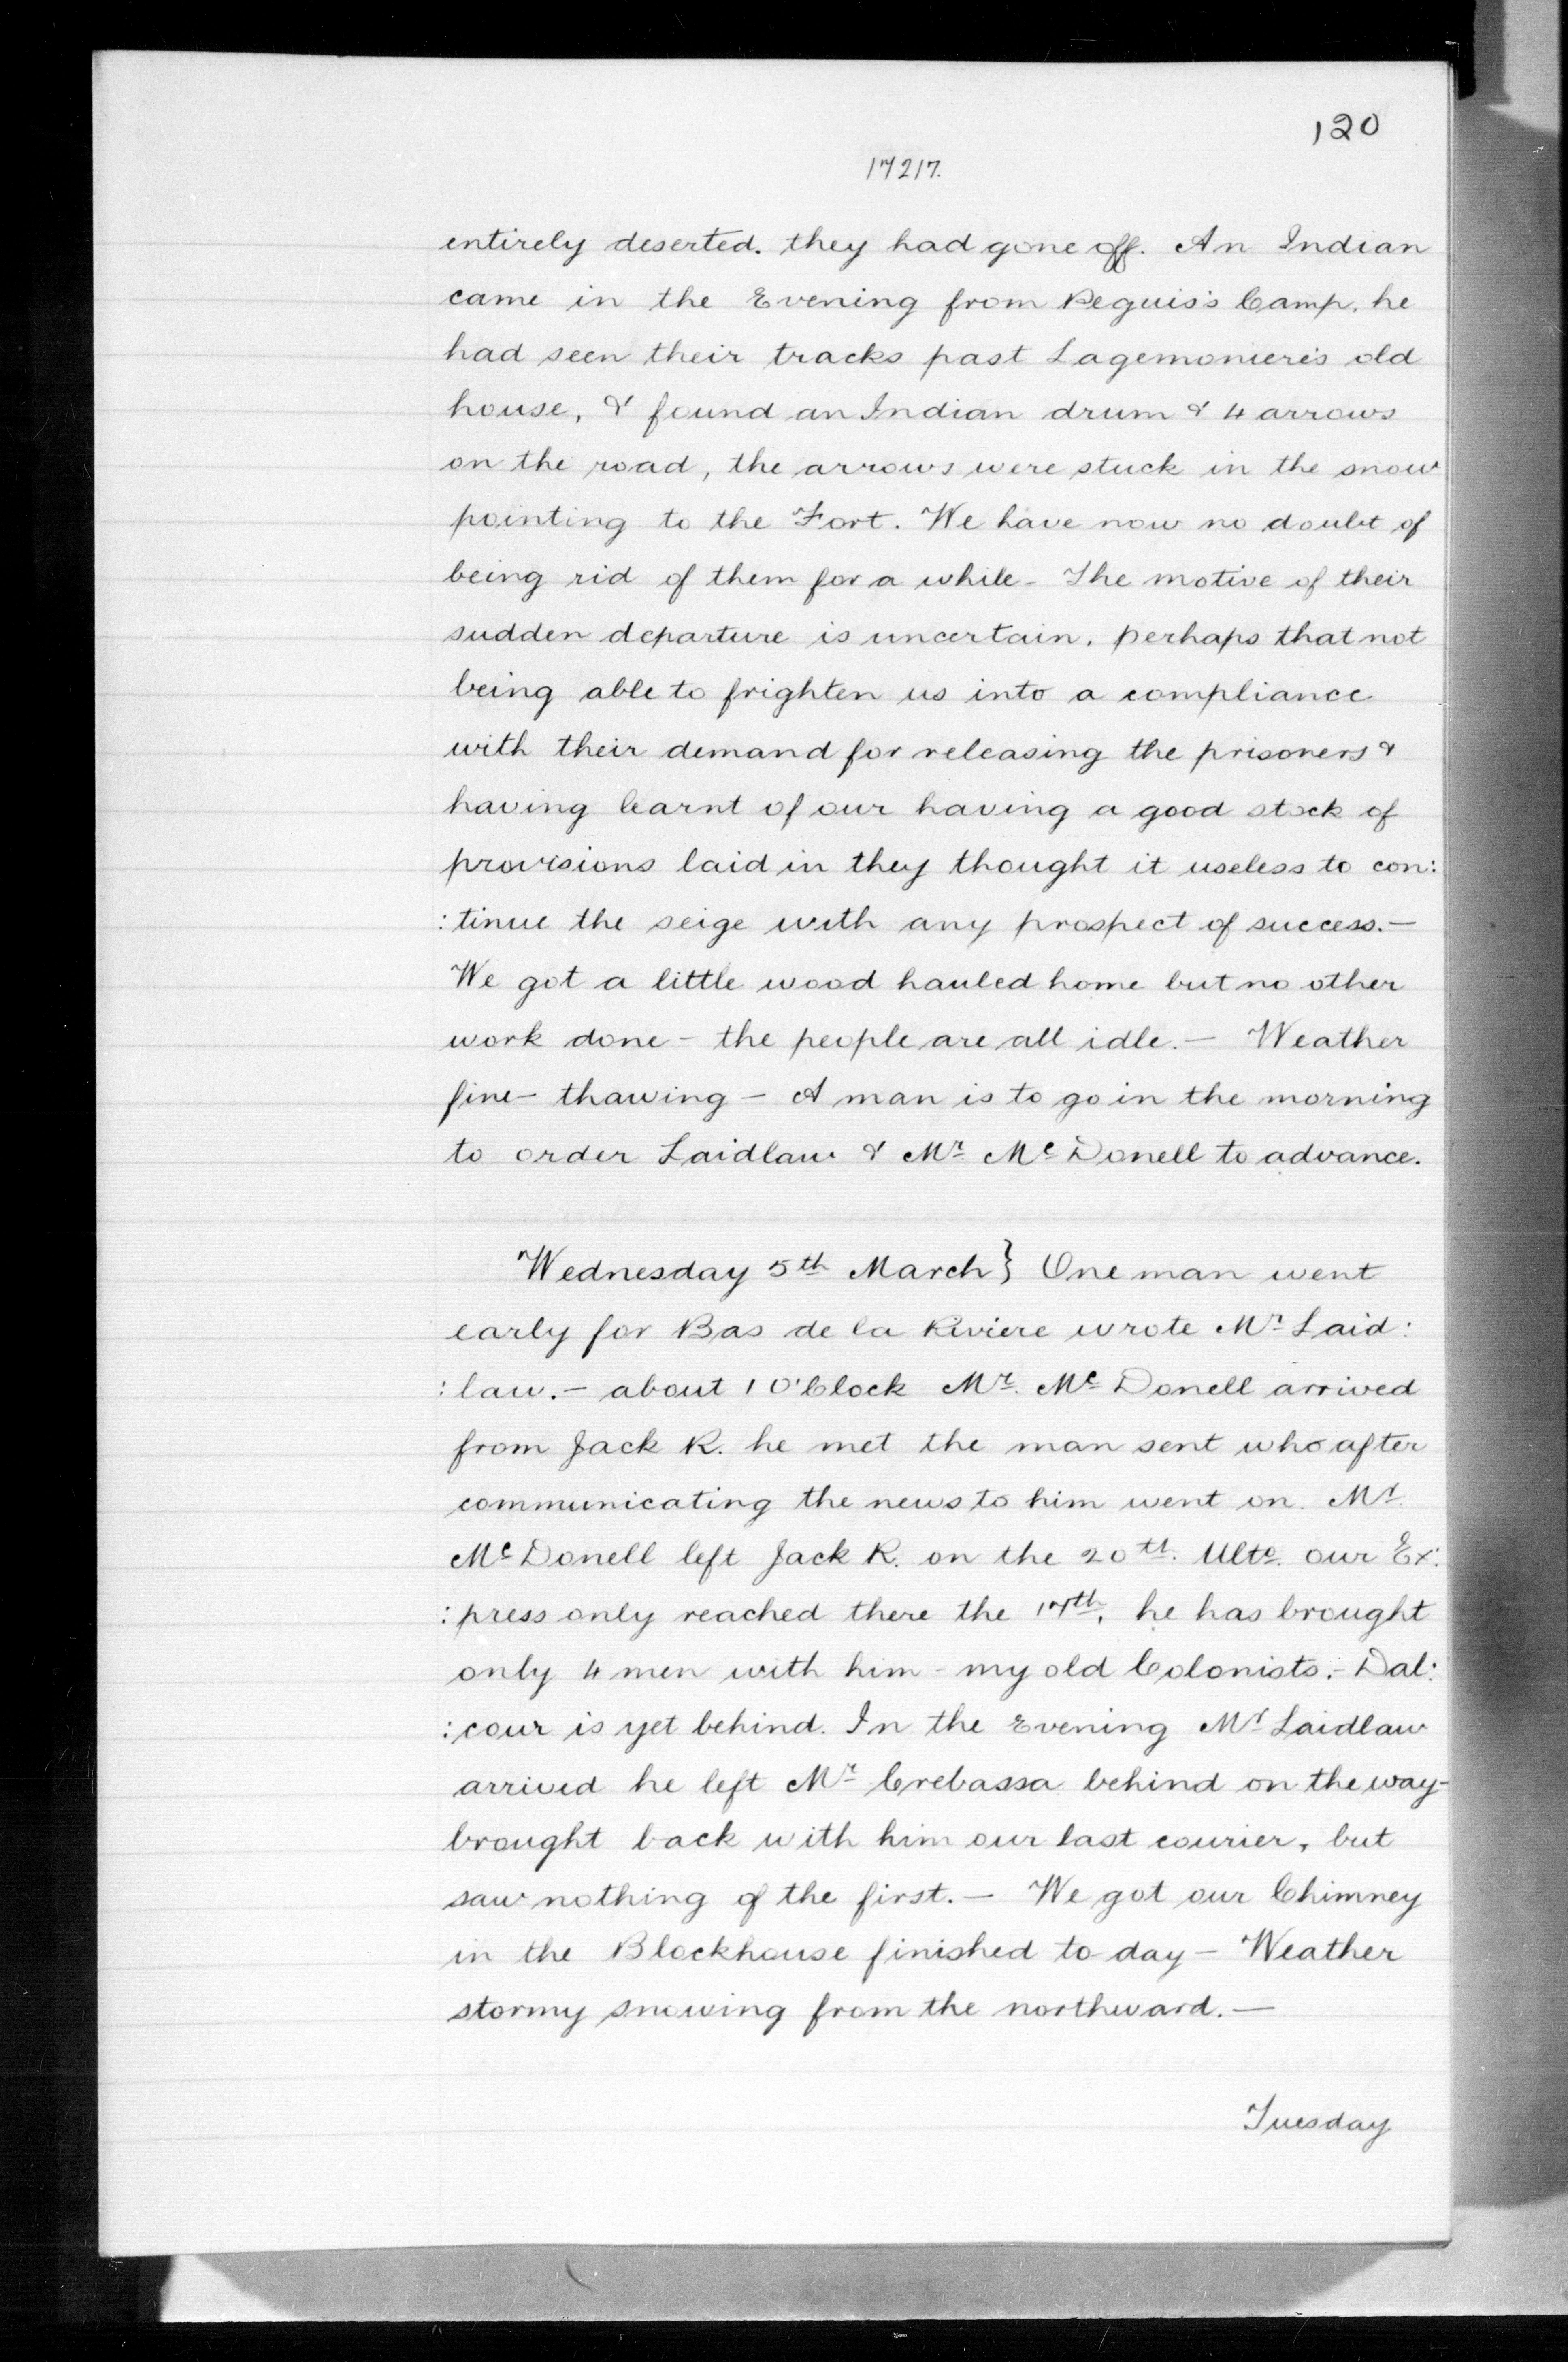 120
17217.
entirely deserted. they had gone off. An Indian
came in the Evening from Peguis's Camp. he
had seen their tracks past Lagemoniere's old
house, & found an Indian drum & 4 arrows
on the road, the arrows were stuck in the snow
pointing to the Fort. We have now no doubt of
being rid of them for a while - The motive of their
sudden departure is uncertain. perhaps that not
being able to frighten us into a compliance
with their demand for releasing the prisoners &
having learnt of our having a good stock of
provisions laid in they thought it useless to con:
:tinue the seige with any prospect of success. —
We got a little wood hauled home but no other
work done - the people are all idle. — Weather
fine - thawing - A man is to go in the morning
to order Laidlaw & Mr. McDonell to advance.
Wednesday 5th March } One man went
early for Bas de la Riviere wrote Mr. Laid:
:law. - about 1 O'Clock Mr. McDonell arrived
from Jack R. he met the man sent who after
communicating the news to him went on. Mr.
McDonell left Jack R. on the 20th. Ulto. our Ex:
:press only reached there the 17th. he has brought
only 4 men with him - my old Colonists. - Dal:
:cour is yet behind. In the Evening Mr Laidlaw
arrived he left Mr. Crebassa behind on the way -
brought back with him our last courier, but
saw nothing of the first. — We got our Chimney
in the Blockhouse finished to-day - Weather
stormy snowing from the northward. —
Tuesday